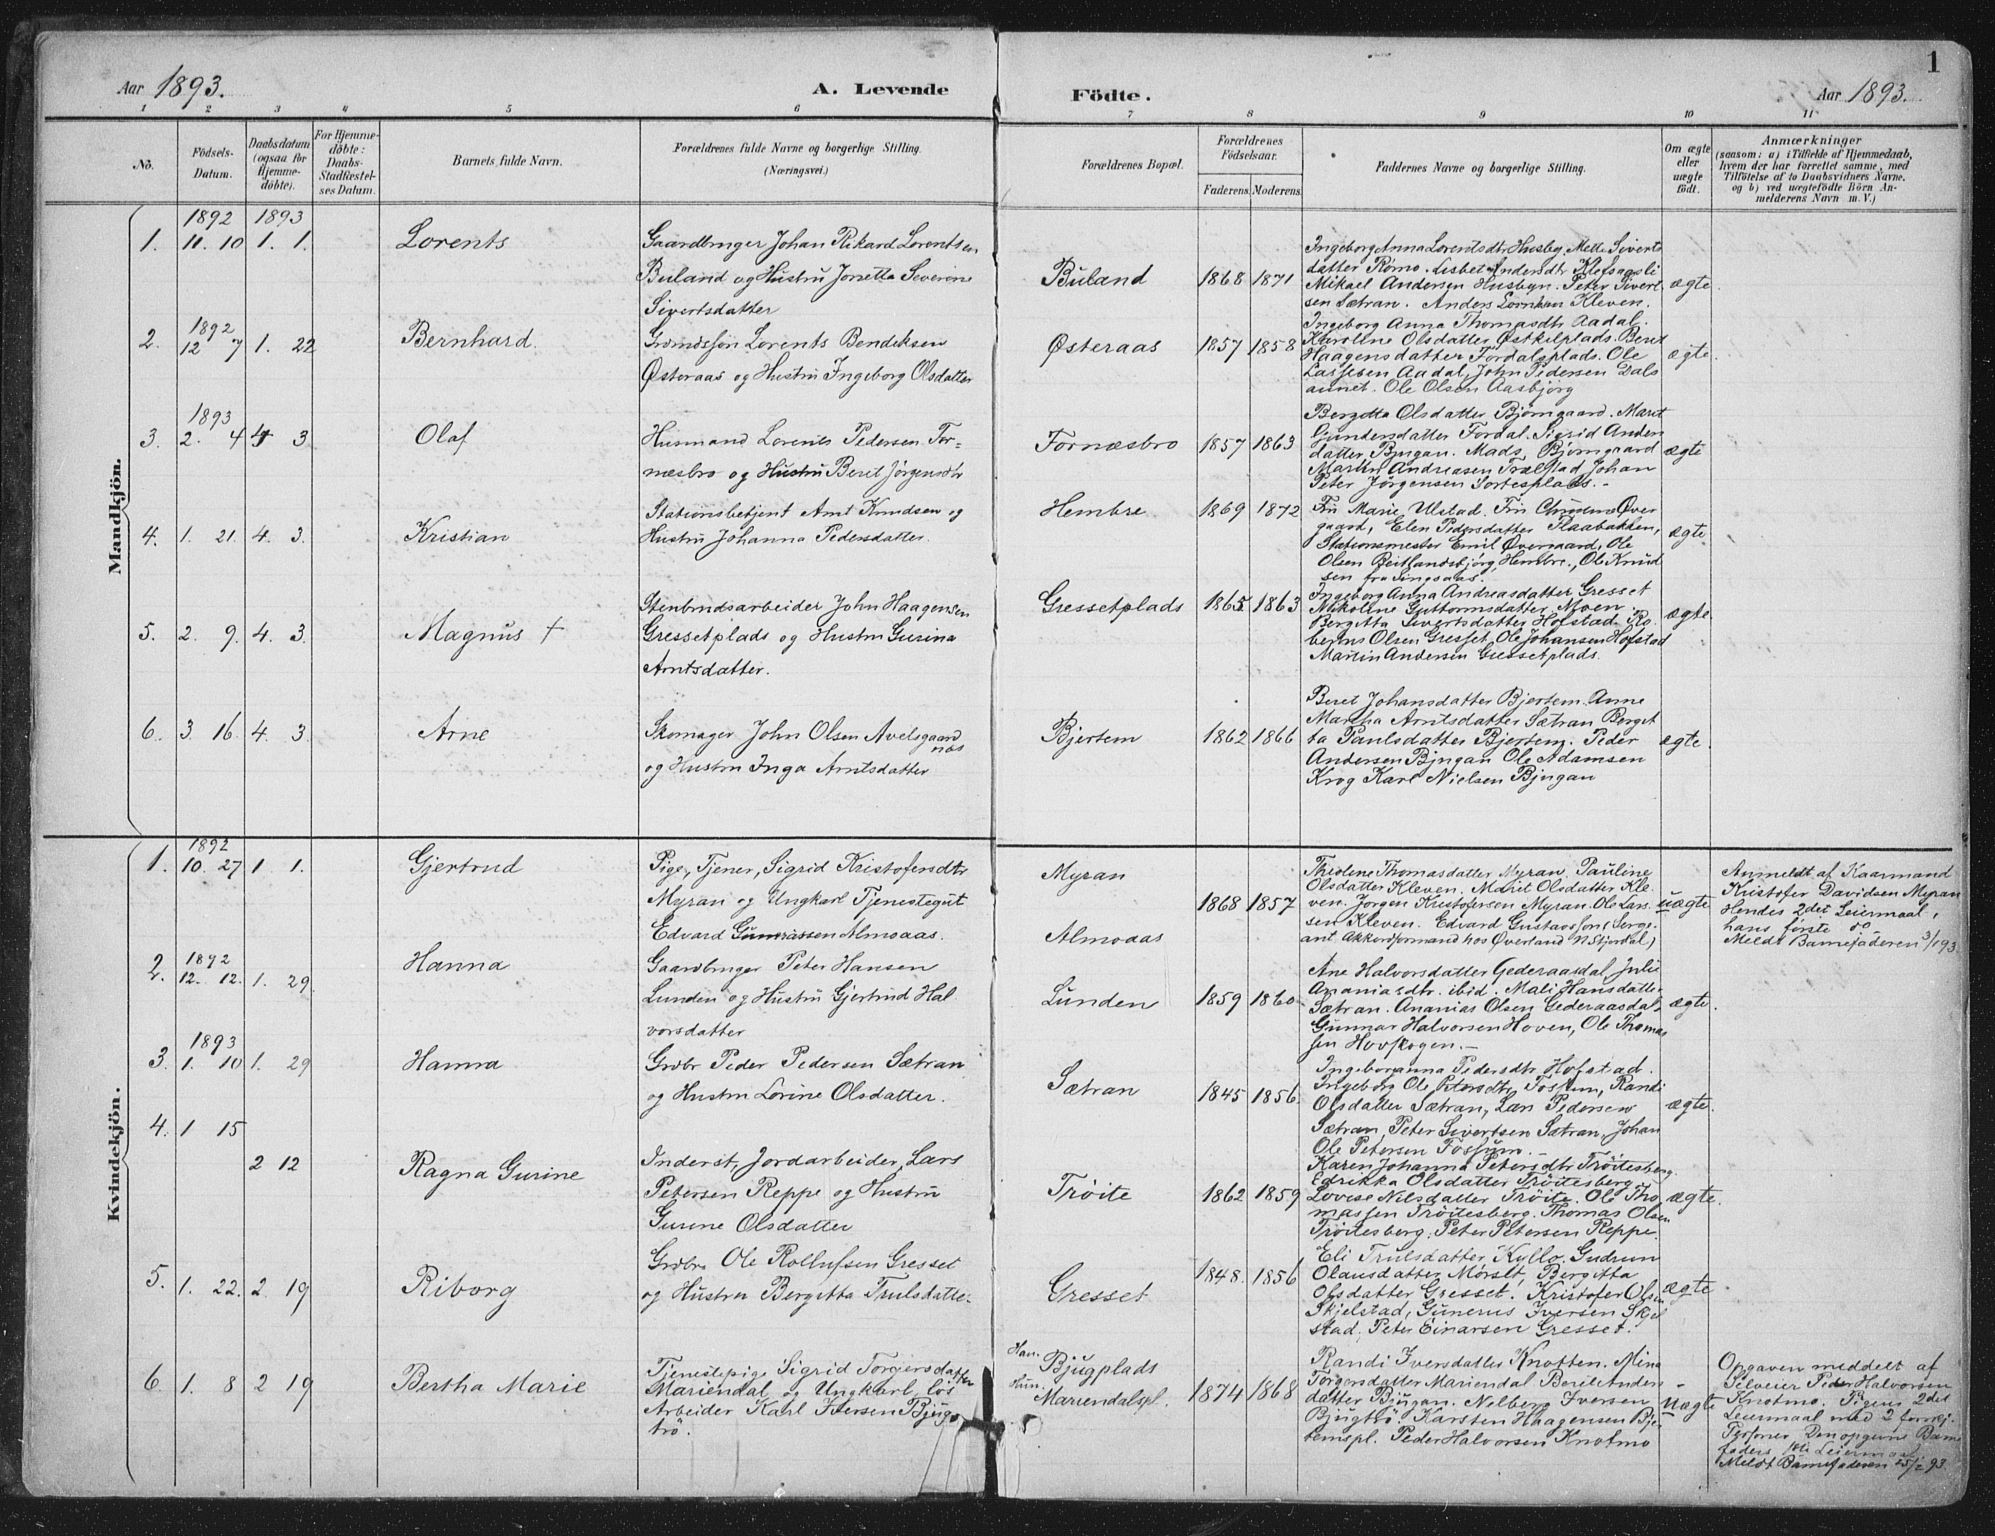 1
Aar 1893.
A. Levende
Födte.
Aar 1893.
1 2 3 4 5 6 7 8 9 10 11
No.
Födsels-
Datum.
Daabsdatum
(ogsaa for
Hjemme-
döbte).
For Hjemme-
döbte:
Daabs-
Stadfæstel-
ses Datum.
Barnets fulde Navn.
Forældrenes fulde Navne og borgerlige Stilling.
(Næringsvei.)
Forældrenes Bopæl.
Forældrenes
Födselsaar.
Faderens. Moderens.
Faddernes Navne og borgerlige Stilling.
Om ægte
eller
uægte
födt.
Anmærkninger
(saasom: a) i Tilfælde af Hjemmedaab,
hvem der har forrettet samme, med
Tilföielse af to Daabsvidners Navne,
og b) ved uægtefödte Börn An-
melderens Navn m. V.)
Mandkjön.
1892 1893
1. 11. 10 1. 1.
Lorents
Gaardbruger Johan Rikard Lorentsen
Buland og Hustru Jonetta Severine
Sivertsdatter
Buland
1868 1871
Ingeborg Anna Lorentsdtr Husby. Mette Siverts
datter Rømo. Lisbet Andersdtr
Mikael Andersen Husbyn. Peter Sivert
sen Sætran. Anders Kleven.
ægte
1892
2. 12 7 1. 22
Bernhard.
Lorents Bendiksen
Østeraas og Hustru Ingeborg Olsdatter
Østeraas
1857 1858
Ingeborg Anna Thomasdtr Aadal.
Karoline Olsdatter Østkilplads. Beret
Haagensdatter Fordalsplads. Ole
Larssen Aadal, John Pedersen Dals
aunet. Ole Olsen Aasbjørg
ægte.
1893
3. 2. 4 4 3
Olaf
Husmand Lorents Pedersen For-
næsbro og Hustru Beret Jørgensdtr
Fornæsbro
1857 1863
Bergitta Olsdatter Bjørngaard. Marit
Gundersdatter Fordal. Sigrid Anders
datter Bjugan. Mads Bjørngaard
Martin Andreasen Trælstad Johan
Peter Jørgensen Sortesplads. -
ægte
4. 1. 21. 4. 3.
Kristian
Stationsbetjent Arnt Knudsen og
Hustru Johanna Pedersdatter.
Hembre
1869 1872
Fru Marie Ulstad. Fru Øver
gaard, Elen Pedersdatter Flaabakken,
Stationsmester Emil Øvergaard, Ole
Olsen Hembre., Ole Knud
sen fra Singsaas.
ægte
5. 2. 9. 4. 3.
Magnus +
Stenbrudsarbeider John Haagensen
Gressetplads og Hustru Gurina
Arntsdatter.
Gressetplads
1865 1863
Ingeborg Anna Andreasdatter Gresset
Mikoline Guttormsdatter Moen.
Bergitta Sivertsdatter Hofstad. Ro
berns Olsen Gresset, Ole Johansen Hofstad
Martin Andersen Gressetplads.
ægte
6. 3. 16. 4. 3.
Arne
Skomager John Olsen Avelsgaard
næs
og Hustru Inga Arntsdatter
Bjertem
1862 1866
Beret Johansdatter Bjertem. Anne
Martha Arntsdatter Sætran Berget
ta Paulsdatter Bjertem. Peder
Andersen Bjugan Ole Adamsen
Krog Karl Nielsen Bjugan
ægte.
Kvindekjön.
1892
1. 10. 27 1 1.
Gjertrud
Pige, Tjener, Sigrid Kristofersdtr
Myran og Ungkarl Tjenestegut
Edvard Almoaas.
Myran
Almoaas
1868 1857
Tholine Thomasdatter Myran, Pauline
Olsdatter Kleven. Marit Olsdatter Kle
ven. Jørgen Kristofersen Myran. Ole Lars.
sen Kleven. Edvard Gustavsson (Serge-
ant Akkordformand hos Øverland N Stjørdal)
uægte
Anmeldt af Kaarmand
Kristofer Davidsen Myran
Hendes 2det Leiermaal,
hans første
Meldt Barnefaderen 3/1 93.
1892
2. 12. 12. 1. 29.
Hanna
Gaardbruger Peter Hansen
Lunden og Hustru Gjertrud Hal
vorsdatter
Lunden
1859 1860
Ane Halvorsdatter Gederaasdal, Julie
Ananiasdtr. ibid. Mali Hansdatter
Sætran. Ananias Olsen Gederaasdal,
Gunnar Halvorsen Hoven, Ole Thomas
sen Hovskogen. -
ægte
1893
3. 1. 10 1. 29
Hanna
Grdbr Peder Pedersen Sætran
og Hustru Lorine Olsdatter.
Sætran
1845 1856.
Ingeboranna Pedersdtr Hofstad.
Ingeborg Ole Petersdtr Fossum, Randi
Olsdatter Sætran, Lars Pedersen
Sætran, Peter Sivertsen Sætran, Johan
Ole Petersen Fossum. -
ægte.
4. 1 15
2 12
Ragna Gurine
Inderst, Jordarbeider, Lars
Petersen Reppe og Hustru
Gurine Olsdatter
Trøite
1862 1859
Karen Johanna Petersdtr Trøitesberg.
Edrikka Olsdatter Trøitesberg
Lovise Nilsdatter Trøite. Ole Tho
massen Trøitesberg. Thomas Olsen
Trøitesberg, Peter Petersen Reppe.
ægte.
5. 1. 22. 2. 19
Riborg
Grdbr Ole Rollufsen Gresset
og Hustru Bergitta Trulsdatter.
Gresset
1848. 1856
Eli Trulsdatter Kyllo, Gudrun
Olausdatter Mørset, Bergitta
Olsdatter Gresset. Kristofer Olsen
Skjelstad, Gunerus Iversen Skjel
stad, Peter Einarsen Gresset.
ægte.
6 1. 8 2 19
Bertha Marie
Tjenestepige Sigrid Torgersdatter
Mariendal og Ungkarl, løs
Arbeider Karl Iversen Bjugs
trö.
Han. Bjugplads
Hun. Mariendalspl.
1874 1868
Randi Iversdatter Knotten. Mina
Torgersdatter Mariendal Berit Anders
datter Bjugan. Nelberg Iversen
Bjugtrö. Karsten Haagensen Bjer
temspl. Peder Halvorsen Knotmo
uægte
Opgaven meddelt af
Selveier Peder Halvorsen
Knotmo. Pigens 2det
Leiermaal med 2 forskj.
Personer Den opgivne Barne
faders 1ste Leiermaal
Meldt Barnefaderen 25/2 93.